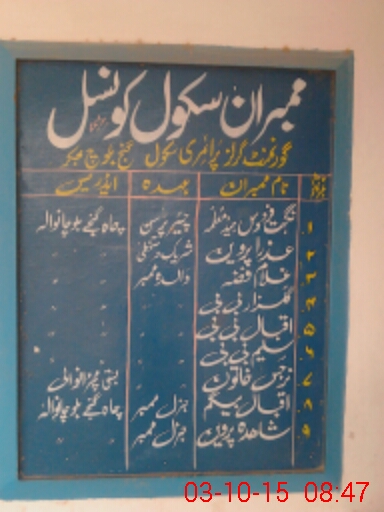 ممبران سکول کونسل
گورنمنٹ گرلز پرائمری سکول گنج بلوچ
نمبر شمار نام ممبران عہدہ ایڈریس
۱ نگہت فردوس ہیڈ معلمہ چیئرپرسن چاہ گنجے بلوچانوالہ
۲ عذرا پروین شریک منتظم " "
۳ غلام فضہ والدہ ممبر " "
۴ گلزار بی بی " " "
۵ اقبال بی بی " " "
۶ سلیم بی بی " " "
۷ نرجس خاتون " " بستی
۸ اقبال بیگم جنرل ممبر چاہ گنجے بلوچانوالہ
۹ شاھدہ پروین جنرل ممبر " "
03-10-15 08:47